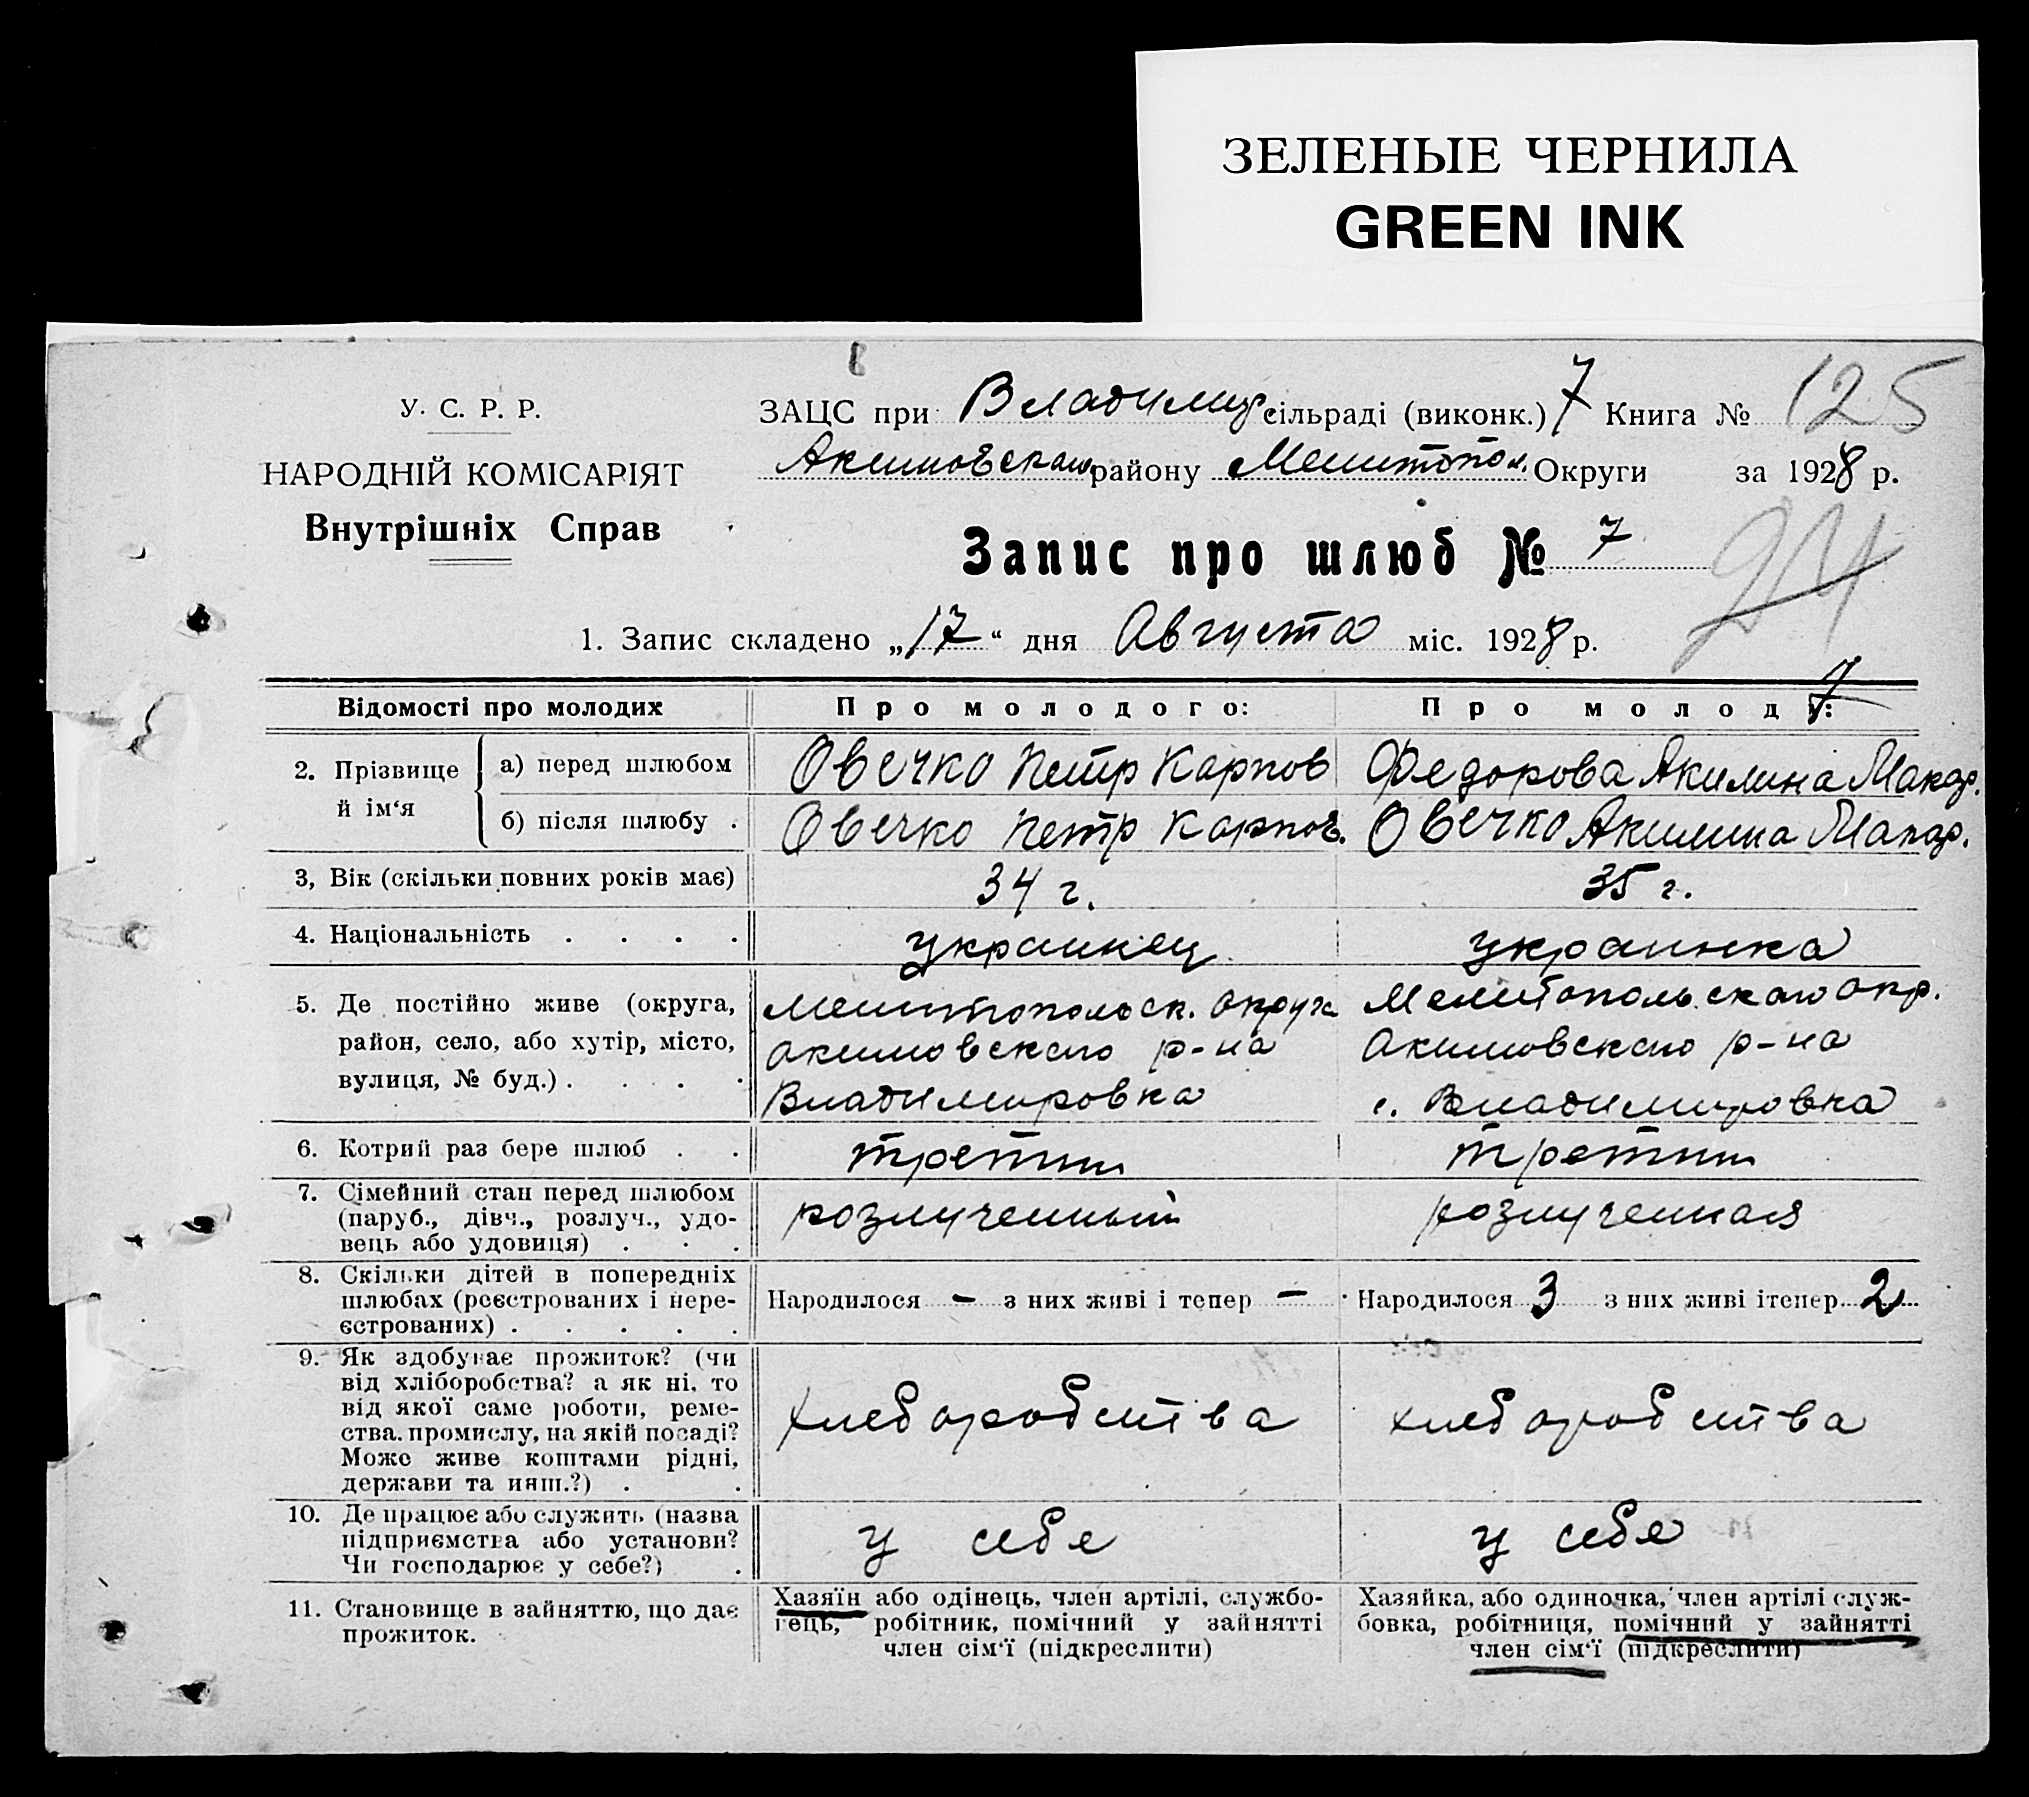 ЗЕЛЕНЫЕ ЧЕРНИЛА
GREEN INK
У. С. Р. Р.
НАРОДНІЙ КОМІСАРІЯТ
Внутрішніх Справ
ЗАЦС при Владимир сільраді (виконк.) 7 Книга № 125
Акимовского району Мелитопол. Округи за 1928 р.
Запис про шлюб № 7
24
1. Запис складено „17“ дня Августа міс. 1928 р.
7
Відомості про молодих Про молодого: Про молоду:
2. Прізвище й ім‘я
а) перед шлюбом Овечко Петр Карпов Федорова Акилина Макар.
б) після шлюбу . Овечко Петр Карпов. Овечко Акилина Макар.
3, Вік (скільки повних років має) 34 г. 35 г.
4. Національність . . . . украинец украинка
5. Де постійно живе (округа,
район, село, або хутір, місто,
вулиця, № буд.) . . . .
Мелитопольск. округа
Акимовского р-на
Владимировка
Мелитопольского окр.
Акимовского р-на
с. Владимировка
6. Котрий раз бере шлюб . . третий третий
7. Сімейний стан перед шлюбом
(паруб., дівч., розлуч., удо-
вець або удовиця) . . .
розлученный розлученная
8. Скільки дітей в попередніх
шлюбах (реєстрованих і нере-
єстрованих) . . . . .
Народилося – з них живі і тепер – Народилося 3 з них живі ітепер 2
9. Як здобуває прожиток? (чи
від хліборобства? а як ні, то
від якої саме роботи, реме-
ства, промислу, на якій посаді?
Може живе коштами рідні,
держави та инш.?) . .
хлеборобства хлеборобства
10. Де працює або служить (назва
підприємства або установи?
Чи господарює у себе?) .
у себе у себе
11. Становище в зайняттю, що дає
прожиток.
Хазяїн або одінець, член артілі, службо-
вець, робітник, помічний у зайнятті
член сім‘ї (підкреслити)
Хазяйка, або одиночка, член артілі служ-
бовка, робітниця, помічний у зайнятті
член сім‘ї (підкреслити)